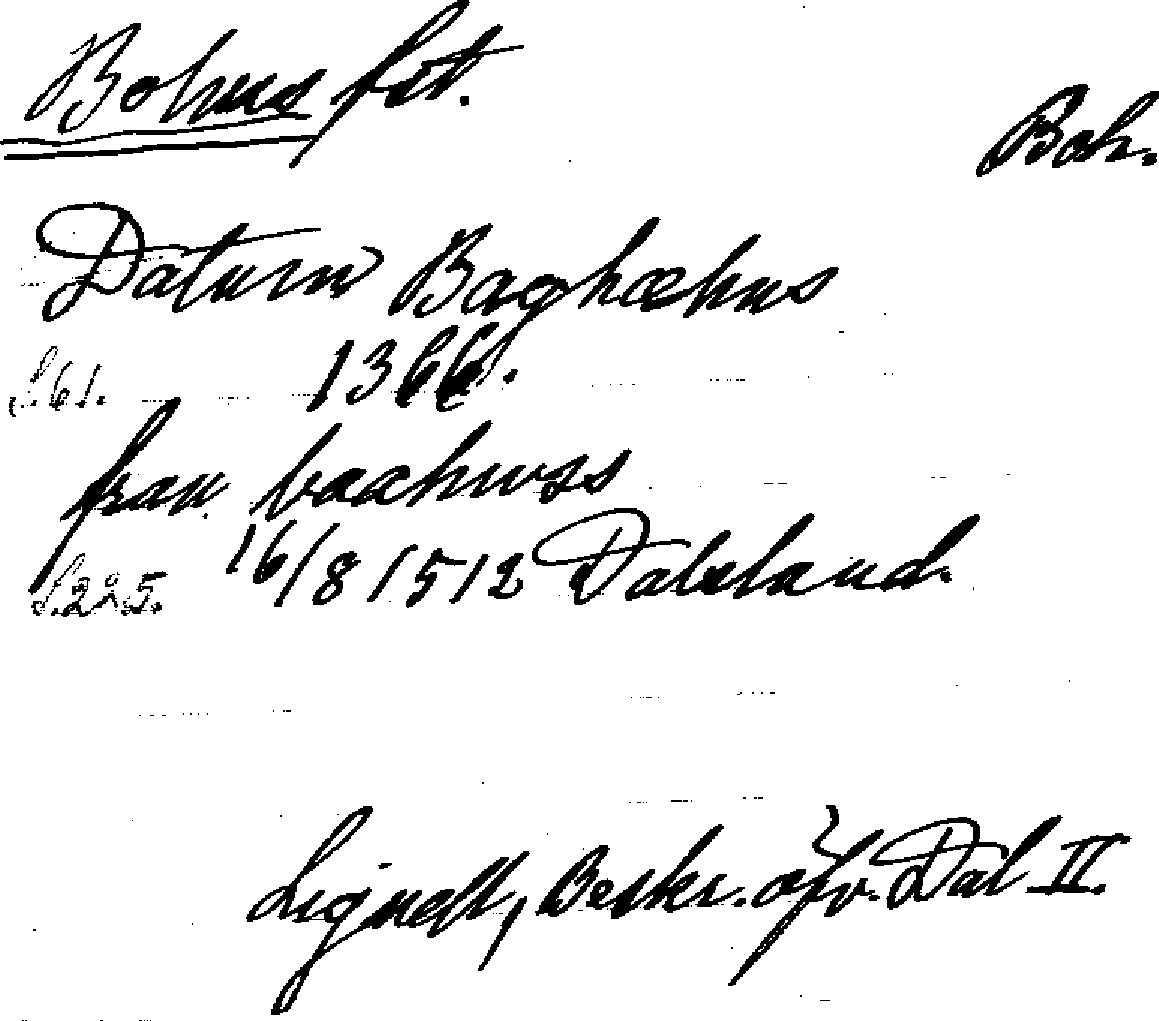 Bohus fst.
Boh.
Datum Baghæhus
S. 61. 1366.
fran baahwss
S. 225. 16/8 1512 Dalsland.
Lignell, Beskr. öfv. Dal II.